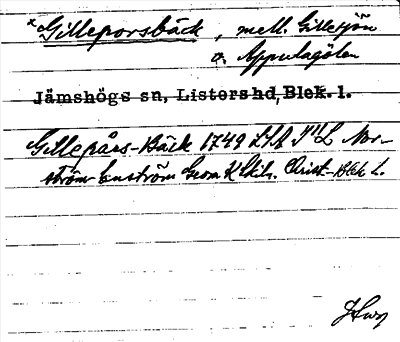 *Gilleporsbäck, mell. Gillesjön
o. Appulagölen
Jämshögs sn, Listers hd, Blek. l.
Gillepårs-Bäck 1749 LSA Nor-
ström Geom Christ- Blek L.